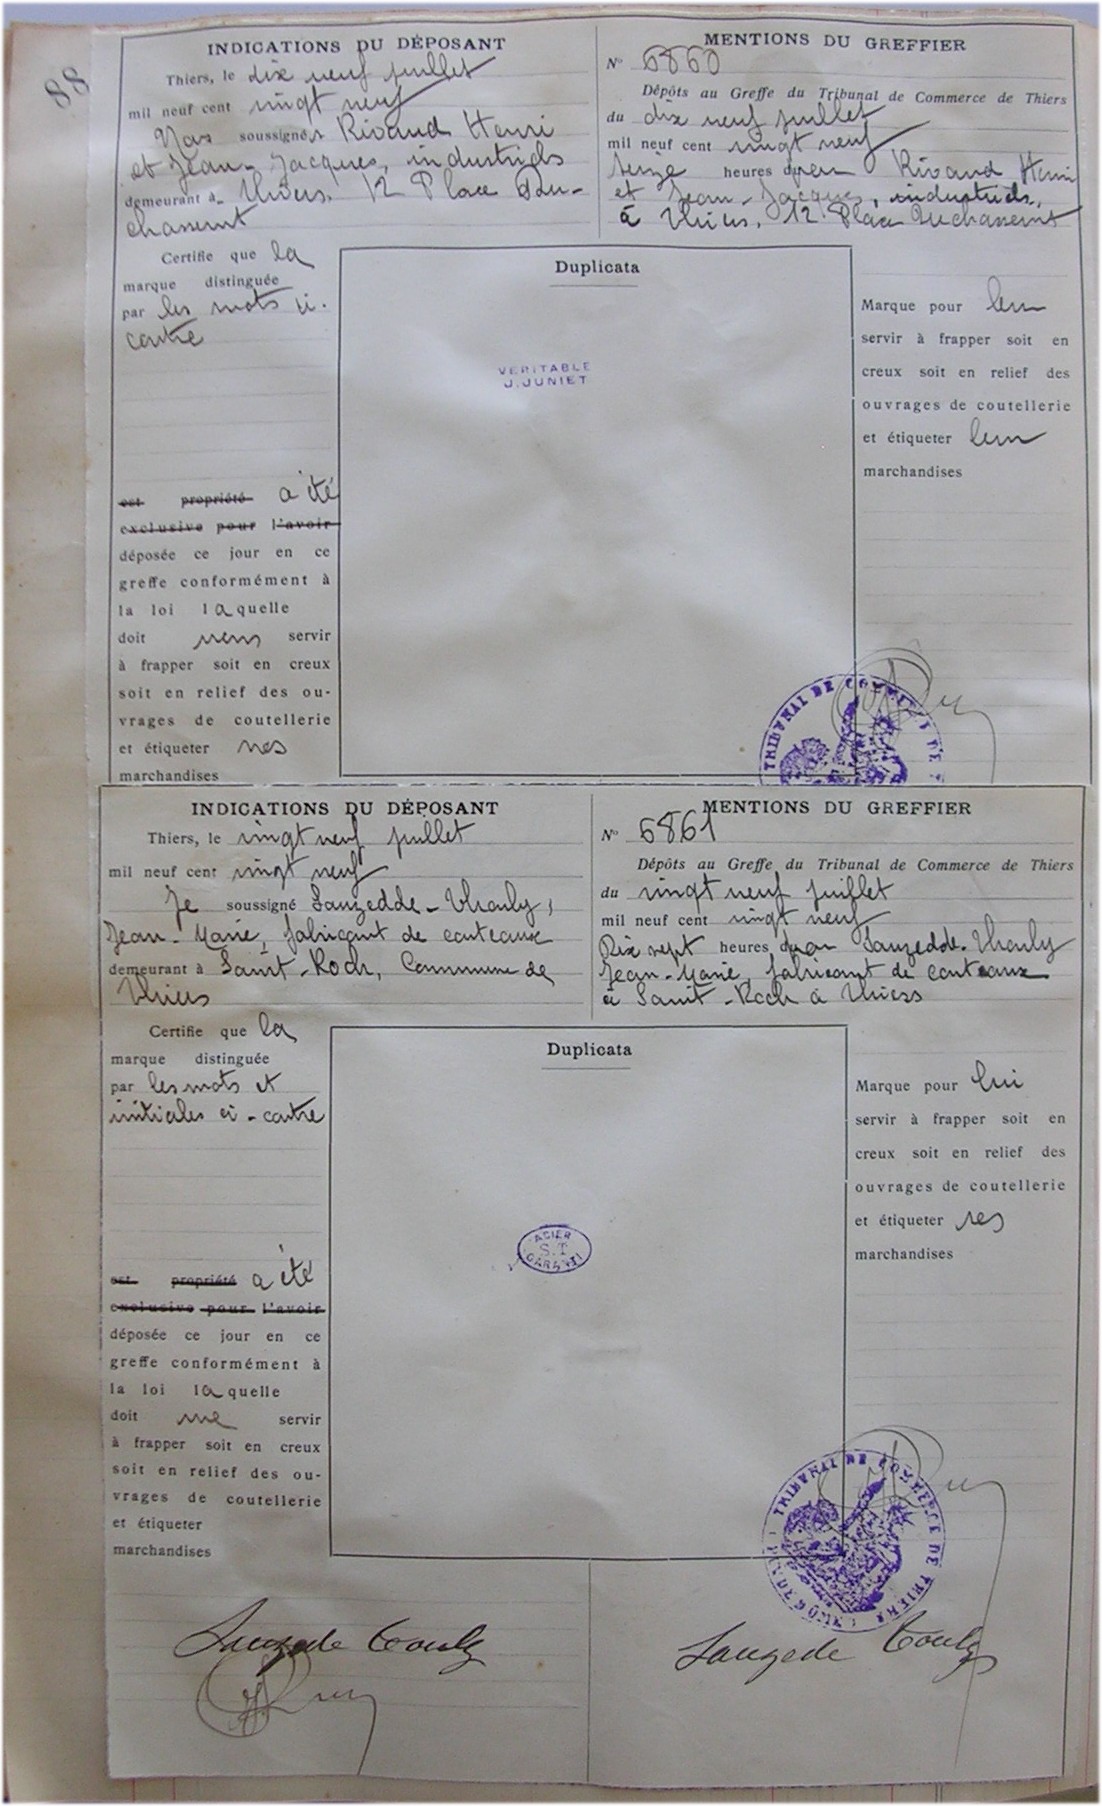 88
INDICATIONS DU DÉPOSANT
Thiers, le dix neuf juillet
mil neuf cent vingt neuf
Nous soussignés Rivaud Henri
et Jean-Jacques, industriels
demeurant à Thiers. 12 Place Du-
chasseint
MENTIONS DU GREFFIER
N° 6860
Dépôts au Greffe du Tribunal de Commerce de Thiers
du dix neuf juillet
mil neuf cent vingt neuf
seize heures par Rivaud Henri
et Jean-Jacques, industriels,
à Thiers, 12 Place Duchasseint
Certifie que la
marque distinguée
par les mots ci-
contre
est propriété a été
exclusive pour l'avoir
déposée ce jour en ce
greffe conformément à
la loi laquelle
doit nous servir
à frapper soit en creux
soit en relief des ou-
vrages de coutellerie
et étiqueter nos
marchandises
Duplicata
VERITABLE
J. JUNIET
Marque pour leur
servir à frapper soit en
creux soit en relief des
ouvrages de coutellerie
et étiqueter leurs
marchandises
TRIBUNAL DE COMMERCE DE
INDICATIONS DU DÉPOSANT
Thiers, le vingt neuf juillet
mil neuf cent vingt neuf
Je soussigné Sauzedde-Thouly,
Jean-Marie, fabricant de couteaux
demeurant à Saint-Roch, Commune de
Thiers
MENTIONS DU GREFFIER
N° 6861
Dépôts au Greffe du Tribunal de Commerce de Thiers
du vingt neuf juillet
mil neuf cent vingt neuf
Dix sept heures par Sauzedde-Thouly
Jean-Marie, fabricant de couteaux
à Saint-Roch à Thiers
Certifie que la
marque distinguée
par les mots et
initiales ci-contre
est propriété a été
exclusive pour l'avoir
déposée ce jour en ce
greffe conformément à
la loi laquelle
doit me servir
à frapper soit en creux
soit en relief des ou-
vrages de coutellerie
et étiqueter
marchandises
Duplicata
ACIER
S.T
GARANTI
Marque pour lui
servir à frapper soit en
creux soit en relief des
ouvrages de coutellerie
et étiqueter ses
marchandises
TRIBUNAL DE COMMERCE DE THIERS (PUY DE DOME)
Sauzede Touly
Sauzede Touly